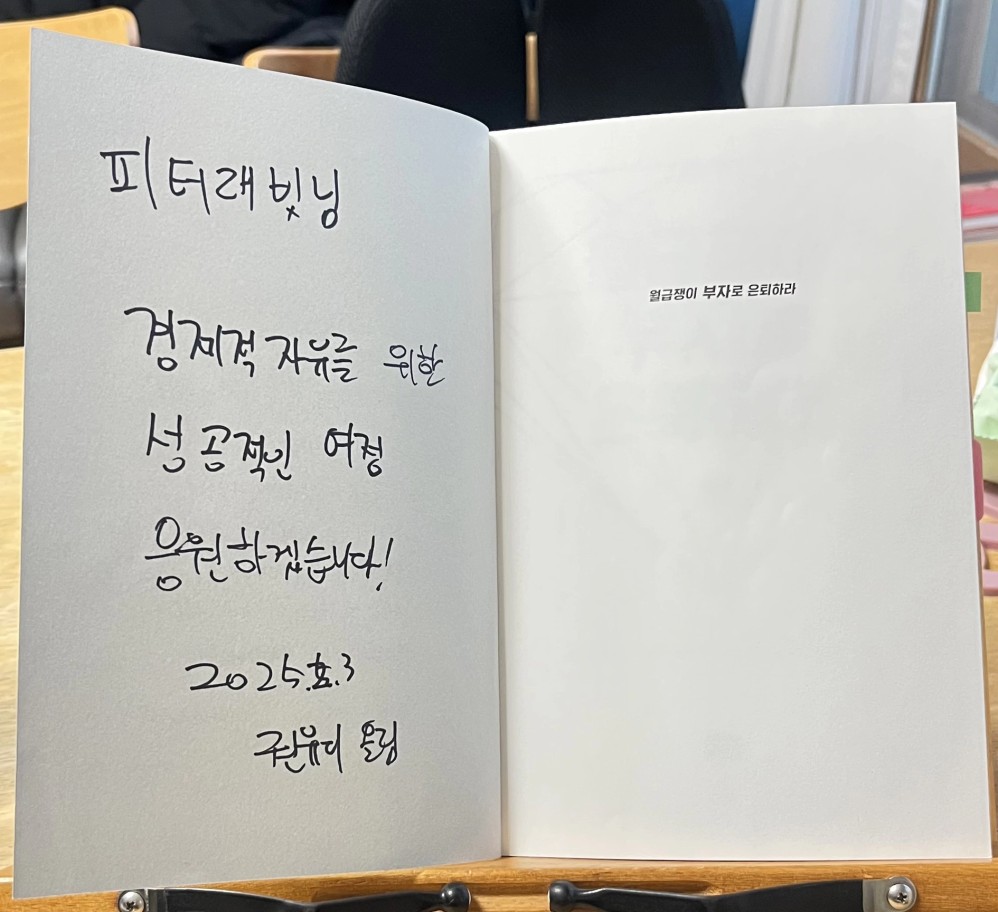 피터래빗님
경제적 자유를 위한
성공적인 여정
응원하겠습니다!
2025. .3
권유디 드림
월급쟁이 부자로 은퇴하라